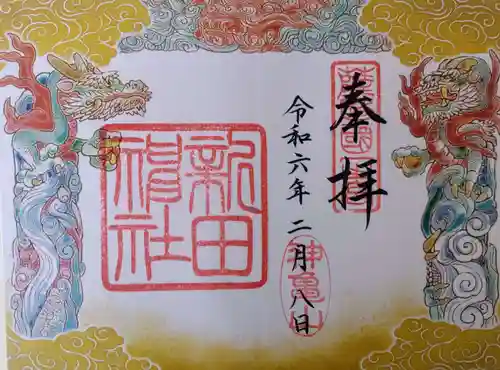 奉拝
令和六年二月八日
新田
神社
神亀山